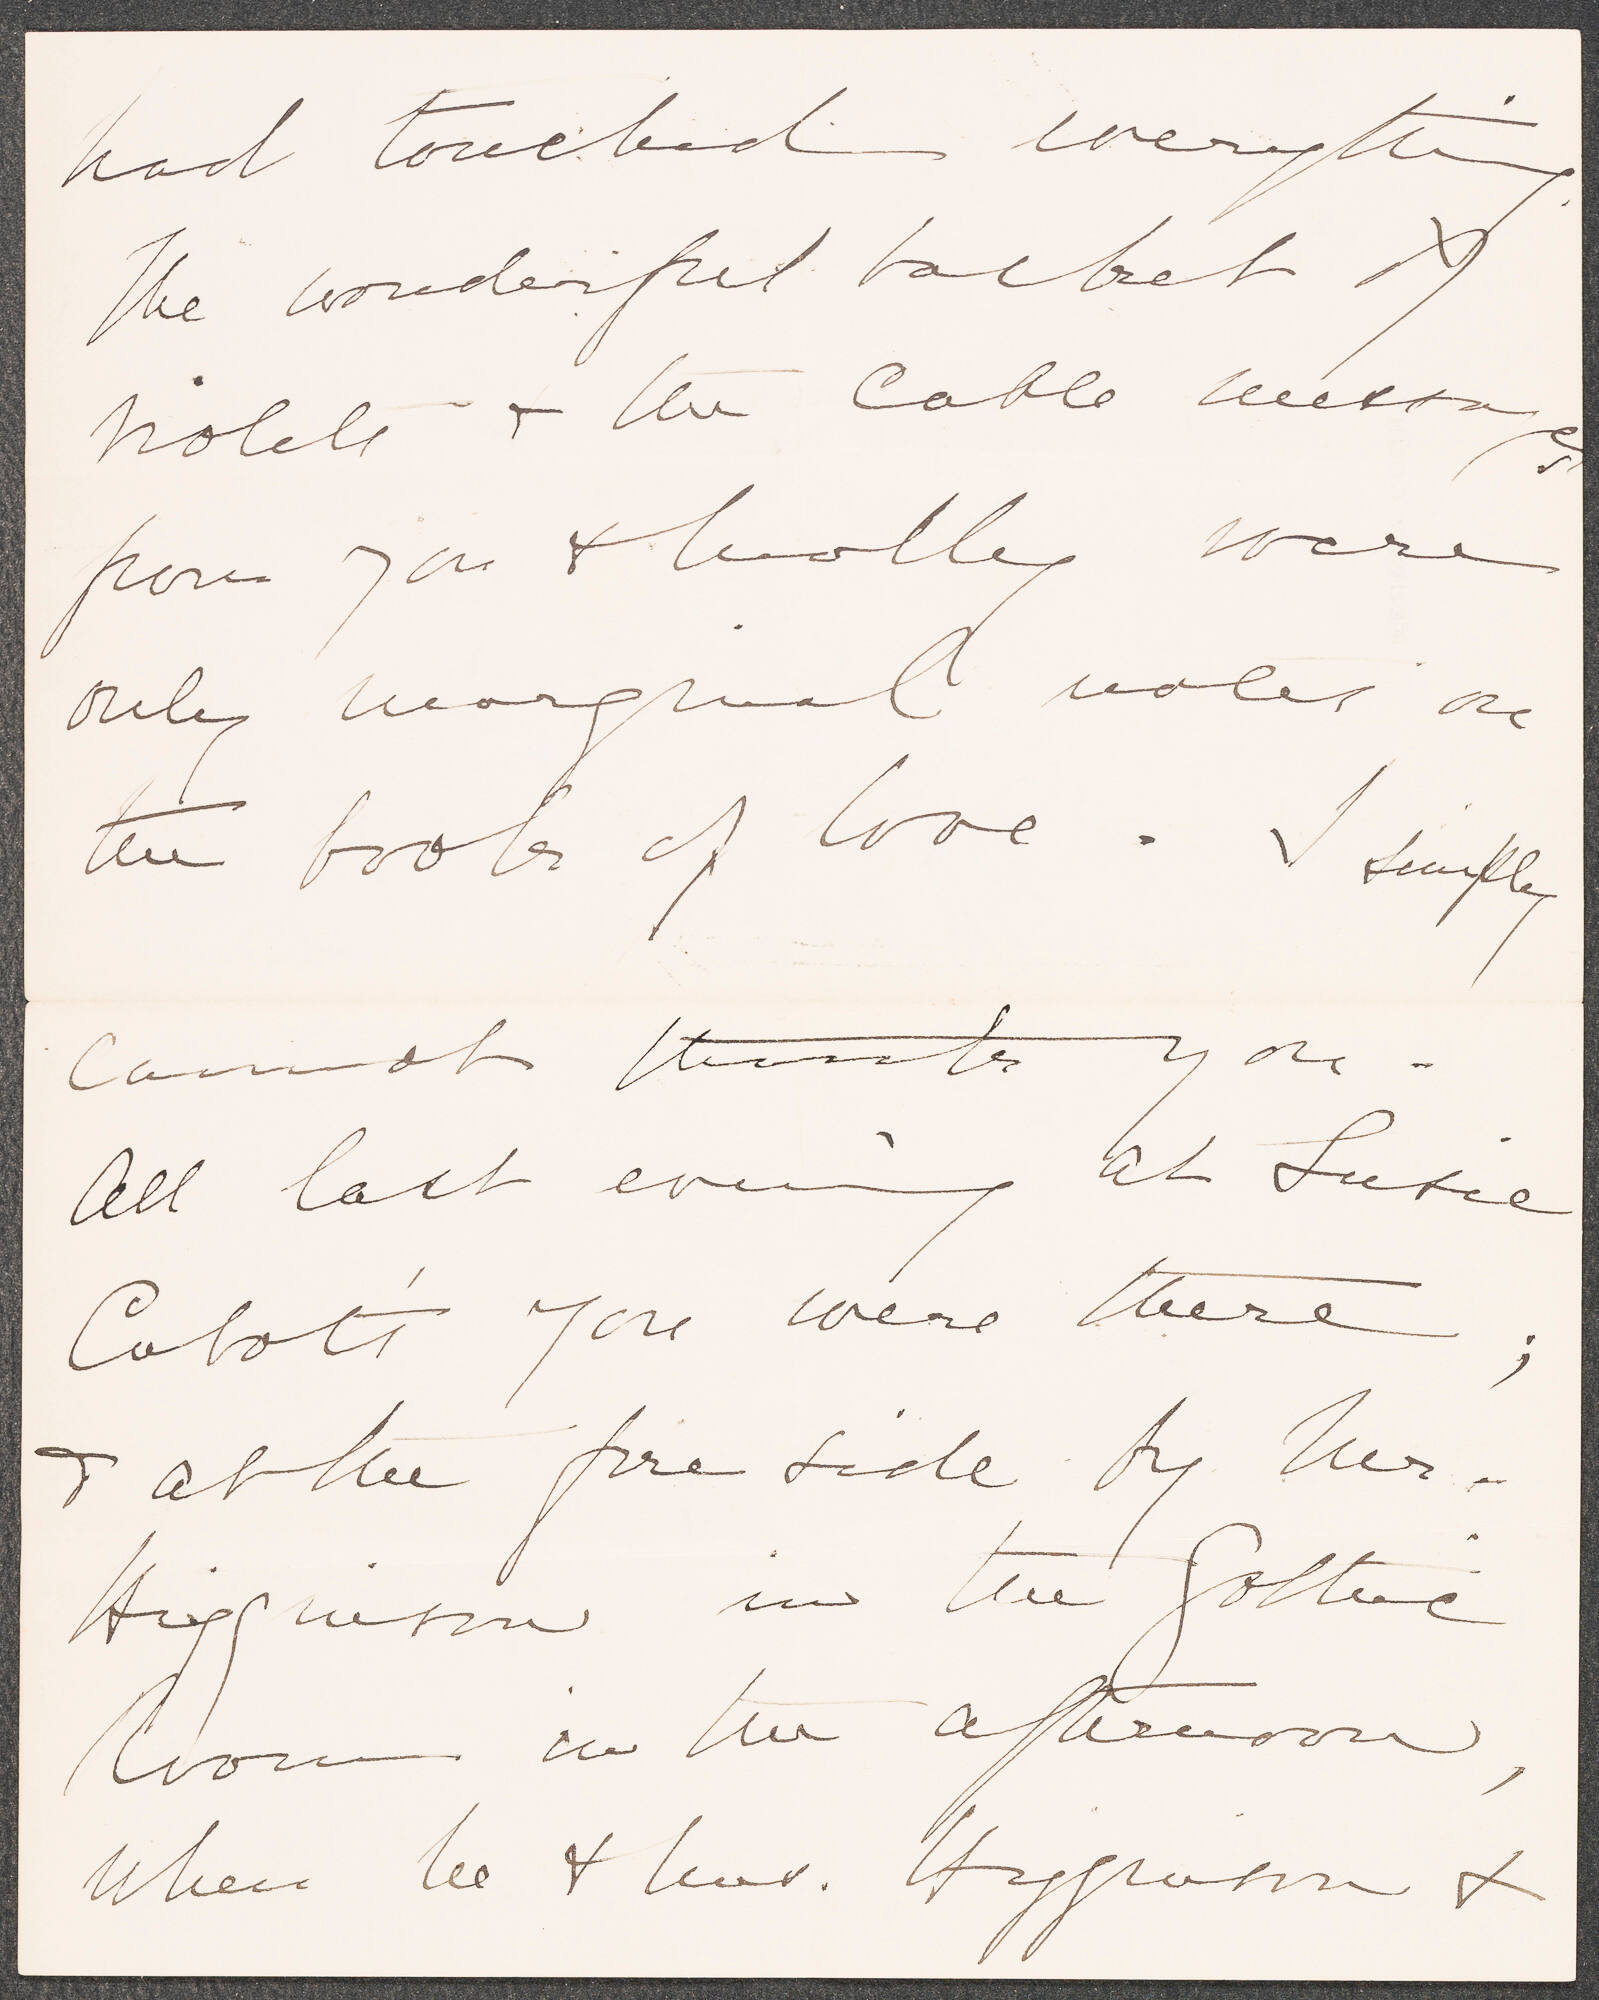 had touched everything.
The wonderful basket of
violets & the cable messages
from you & Molly were
only marginal notes on
the book of love. I simply
cannot thank you.
All last evening at Susie
Cabot's you were there;
& at the fire side by Mr.
Higginson in the Gothic
Room in the afternoon,
when he & Mrs. Higginson &